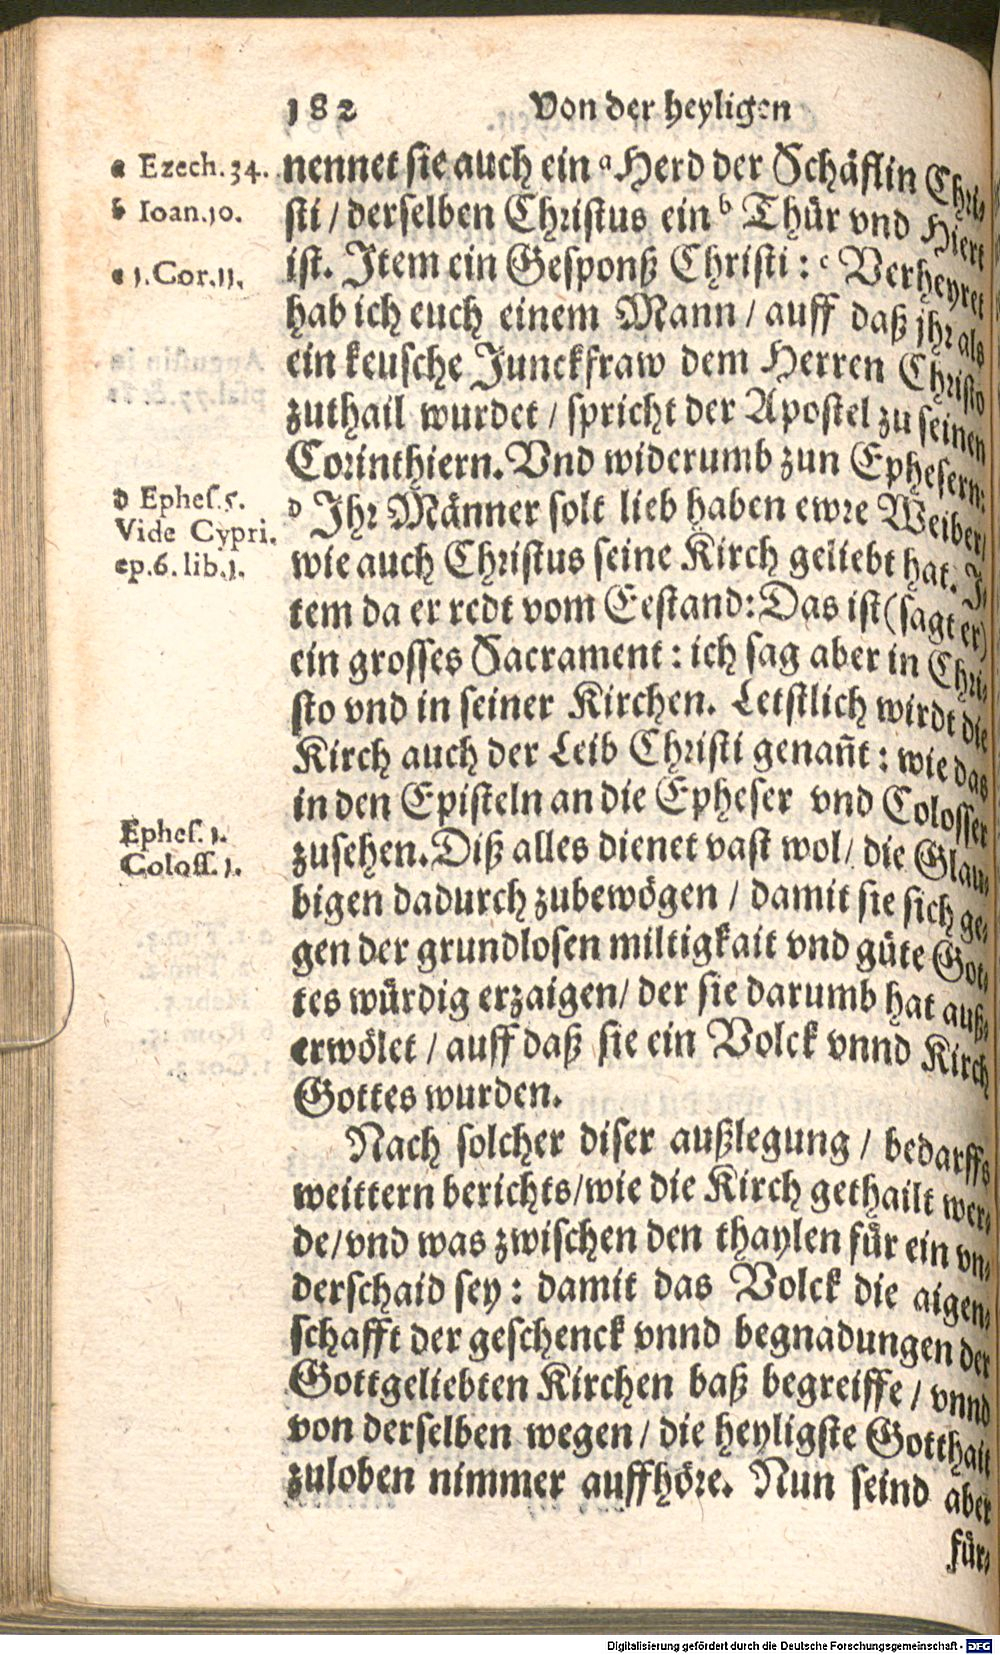 182 Von der heyligen
a Ezech. 34.
b Ioan. 10.
c 1. Cor. 11.
d Ephes. 5.
Vide Cypri.
ep. 6. lib. 1.
Ephes. 1.
Coloss. 1.
nennet sie auch ein a Herd der Schäflin Chri-
sti / derselben Christus ein b Thür vnd Hiert
ist. Item ein Gesponß Christi : c Verheyret
hab ich euch einem Mann / auff daß jhr als
ein keusche Junckfraw dem Herren Christo
zuthail wurdet / spricht der Apostel zu seinen
Corinthiern. Vnd widerumb zun Ephesern:
d Ihr Männer solt lieb haben ewre Weiber/
wie auch Christus seine Kirch geliebt hat. I-
tem da er redt vom Eestand: Das ist (sagt er)
ein grosses Sacrament : ich sag aber in Chri-
sto vnd in seiner Kirchen. Letstlich wirdt die
Kirch auch der Leib Christi genañt : wie das
in den Episteln an die Epheser vnd Colosser
zusehen. Diß alles dienet vast wol / die Glau-
bigen dadurch zubewögen / damit sie sich ge-
gen der grundlosen miltigkait vnd güte Got-
tes würdig erzaigen / der sie darumb hat auß-
erwölet / auff daß sie ein Volck vnnd Kirch
Gottes wurden.
Nach solcher diser außlegung / bedarffs
weittern berichts / wie die Kirch gethailt wer-
de / vnd was zwischen den thaylen für ein vn-
derschaid sey : damit das Volck die aigen-
schafft der geschenck vnnd begnadungen der
Gottgeliebten Kirchen baß begreiffe / vnnd
von derselben wegen / die heyligste Gotthait
zuloben nimmer auffhöre. Nun seind aber
für-
Digitalisierung gefördert durch die Deutsche Forschungsgemeinschaft - DFG